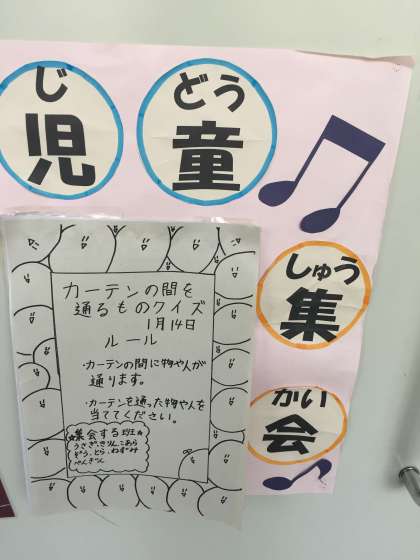 じ
児
どう
童
しゅう
集
かい
会
カーテンの間を
通るものクイズ
1月14日
ルール
・カーテンの間に物や人が
通ります。
・カーテンを通った物や人を
当ててください。
☆集会する班☆
うさぎ、きりん、こあら
ぞう、とら、ねずみ
ぺんぎん